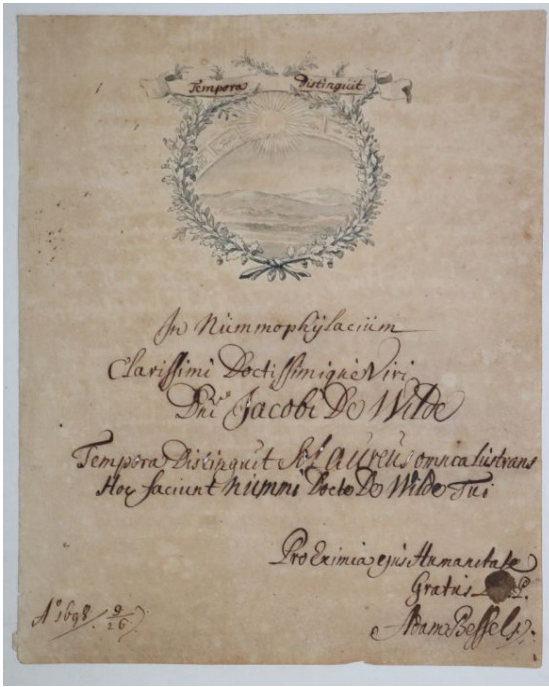 Tempora Distinguit
In Nümmophÿlaciüm
Clarissimi Doctissimiqüe Viri
Dni Jacobi De Wilde
Tempora Distinguit Sol aureus omnia lustrans
Hoc faciunt Nummi Docte De Wilde Tui
Pro Eximia ejus Humanitate
Gratus P.
Adam Bessels
Aº 1698 9/26